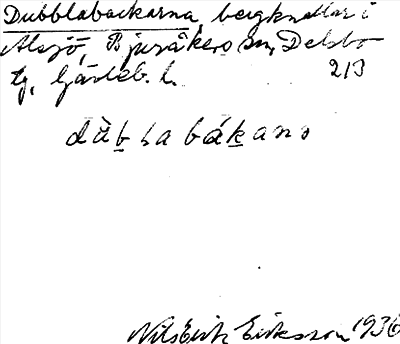 Dubblabackarna, bergknallar i
Alsjö, Bjuråkers sn, Delsbo
tg, Gävleb. l. 213
dùblabákanɔ
Nils Erik Eriksson 1936